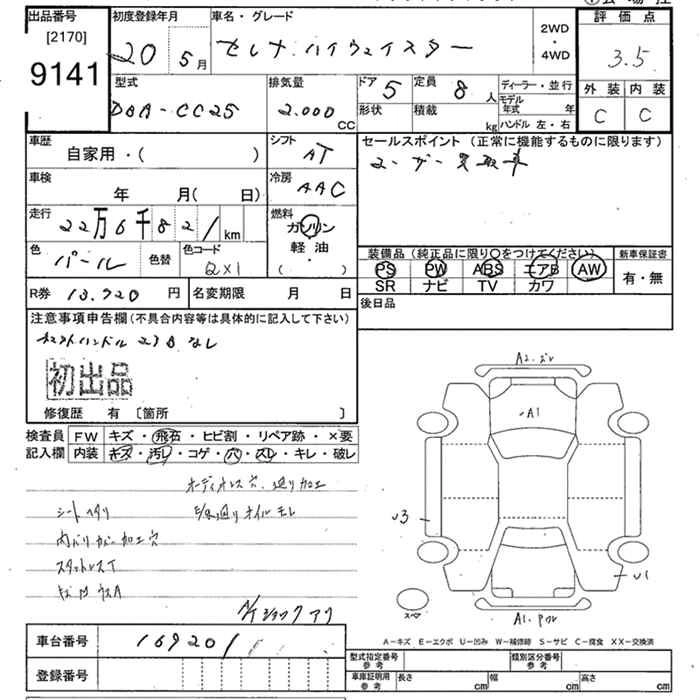 出品番号 初度登録年月 車名・グレード 2WD・4WD 評価点
[2170]
9141 20 5月 セレナ ハイウェイスター 3.5
型式 排気量 ドア 5 定員 8 人 ディーラー・並行 外装 内装
DBA-CC25 2.000 CC 形状 積載 kg モデル年式 年 C C
ハンドル 左・右
車歴 シフト セールスポイント (正常に機能するものに限ります)
自家用・( ) AT ユーザー買取車
車検 冷房
年 月( 日) AAC
走行 燃料
22万6千821km ガソリン
軽油
・
( )
色 パール 色替 色コード QX1
装備品 (純正品に限り○をつけてください) 新車保証書
PS PW ABS エアB AW 有・無
SR ナビ TV カワ
R券 13.920 円 名変期限 月 日 後日品
注意事項申告欄 (不具合内容等は具体的に記入して下さい)
なし
初出品
修復歴 有 [箇所 ]
検査員 FW キズ・飛石・ヒビ割・リペア跡・×要
記入欄 内装 キズ・汚レ・コゲ・穴・スレ・キレ・破レ
オーディオレス穴、廻り加工
シートヘタリ
オイルモレ
内バリ カバー加工穴
スタットレスT
A2
A1
U3
U1
スペア
A1
A-キズ E-エクボ U-凹み W-補修跡 S-サビ C-腐食 XX-交換済
車台番号 169201
登録番号
型式指定番号 参考 類別区分番号 参考
車庫証明用 参考 長さ cm 幅 cm 高さ cm